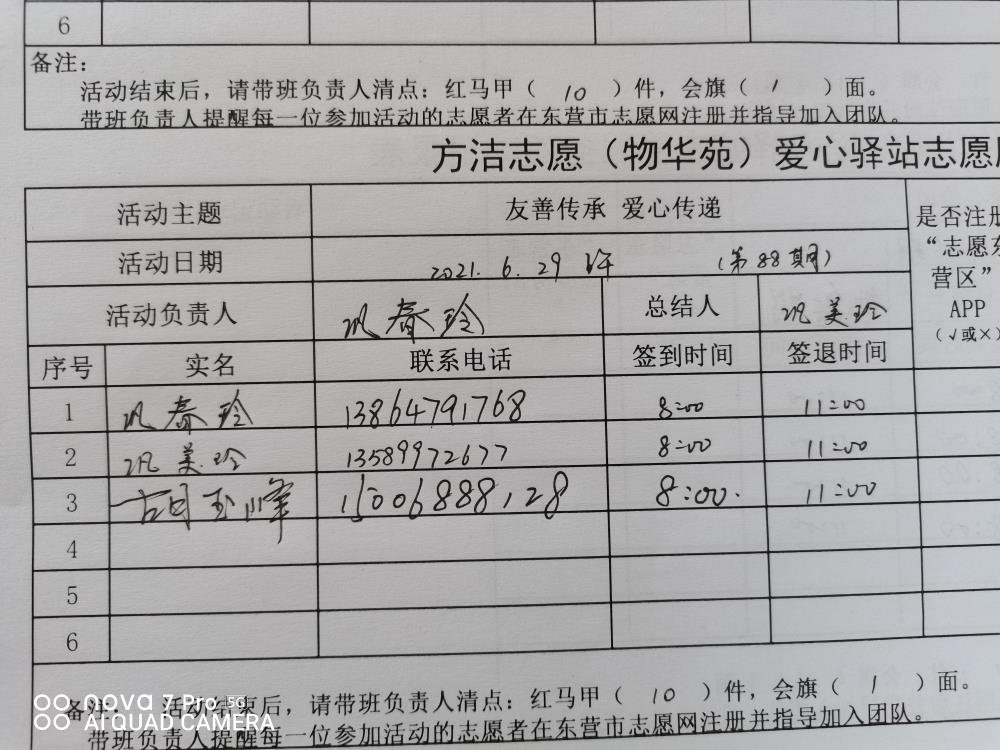 6
备注：
活动结束后，请带班负责人清点：红马甲（ 10 ）件，会旗（ 1 ）面。
带班负责人提醒每一位参加活动的志愿者在东营市志愿网注册并指导加入团队。
方洁志愿（物华苑）爱心驿站志愿
活动主题 友善传承 爱心传递
是否注册
“志愿东
营区”
APP
（√或×）
活动日期 2021. 6. 29 （第88期）
活动负责人 巩春玲 总结人 巩美玲
序号 实名 联系电话 签到时间 签退时间
1 巩春玲 13864791768 8:00 11:00
2 巩美玲 13589972677 8:00 11:00
3 胡玉峰 15006888128 8:00. 11:00
4
5
6
备注： 活动结束后，请带班负责人清点：红马甲（ 10 ）件，会旗（ 1 ）面。
带班负责人提醒每一位参加活动的志愿者在东营市志愿网注册并指导加入团队。
nova 7 Pro 5G
AI QUAD CAMERA